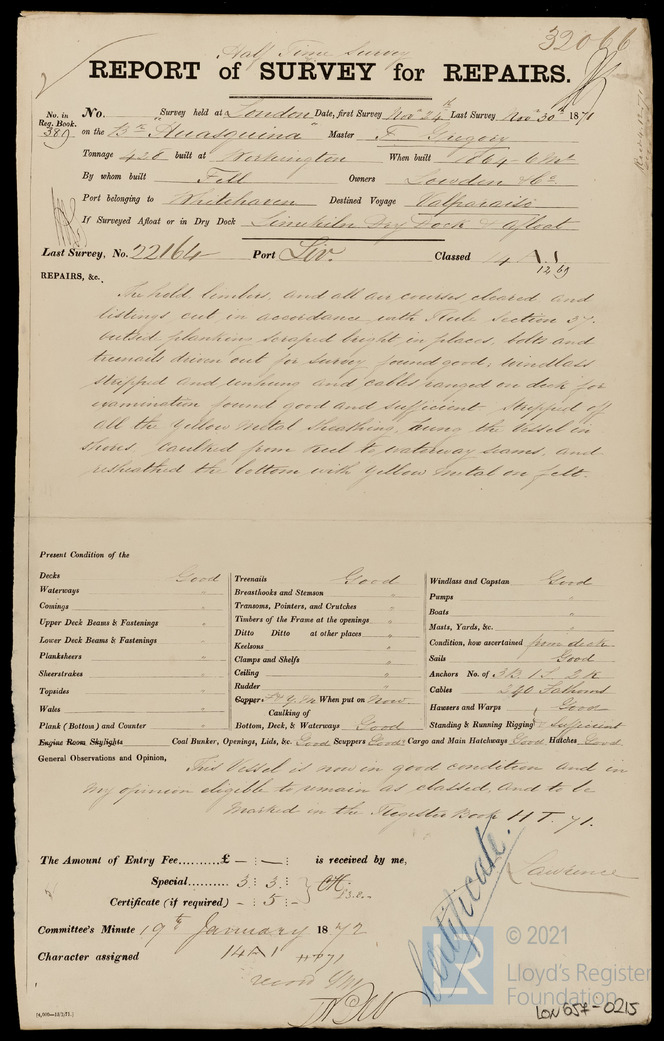 32066
Half Time Survey
REPORT of SURVEY for REPAIRS.
No. in Reg. Book. 389
No. Survey held at London Date, first Survey Novr 24th Last Survey Novr 30th 1871
on the Bk "Huasquina" Master F Gregory
Tonnage 428 built at Workington When built 1864-6 Mo
By whom built Fell Owners Lowden & Co
Port belonging to Whitehaven Destined Voyage Valparaiso
If Surveyed Afloat or in Dry Dock Limekiln Dry Dock & Afloat
Last Survey, No. 22164 Port Liv. Classed 14 A 1
12 69
REPAIRS, &c.
The hold, limbers, and all air courses cleared and
listings cut in accordance with Rule Section 37.
outside planking scraped bright in places, bolts and
treenails driven out for survey found good, windlass
stripped and unhung and cables ranged on deck for
examination found good and sufficient. Stripped off
all the yellow metal sheathing, hung the vessel in
shores, caulked from keel to waterway seams, and
resheathed the bottom with yellow metal on felt.
Present Condition of the
Decks Good
Waterways "
Comings "
Upper Deck Beams & Fastenings "
Lower Deck Beams & Fastenings "
Planksheers "
Sheerstrakes "
Topsides "
Wales "
Plank (Bottom) and Counter "
Treenails Good
Breasthooks and Stemson "
Transoms, Pointers, and Crutches "
Timbers of the Frame at the openings "
Ditto Ditto at other places "
Keelsons "
Clamps and Shelfs "
Ceiling "
Rudder "
Copper Y.M. When put on Now
Caulking of
Bottom, Deck, & Waterways Good
Windlass and Capstan Good
Pumps "
Boats "
Masts, Yards, &c. "
Condition, how ascertained from deck
Sails Good
Anchors No. of 3 B. 1 S. 2 K
Cables 240 Fathoms
Hawsers and Warps Good
Standing & Running Rigging sufficient
Engine Room Skylights Coal Bunker, Openings, Lids, &c. Good Scuppers Good Cargo and Main Hatchways Good Hatches Good
General Observations and Opinion,
This Vessel is now in good condition and in
my opinion eligible to remain as classed, and to be
Marked in the Register Book HT. 71.
The Amount of Entry Fee.........£ - : - : is received by me,
Special.......... 3 : 3 :
Certificate (if required) - : 5 :
Lawrence
Certificate.
Committee's Minute 19th January 1872
Character assigned 14 A 1 HT 71
record YM
(4,000—13/2/71.)
© 2021
LR
Lloyd's Register
Foundation
LON 657-0215